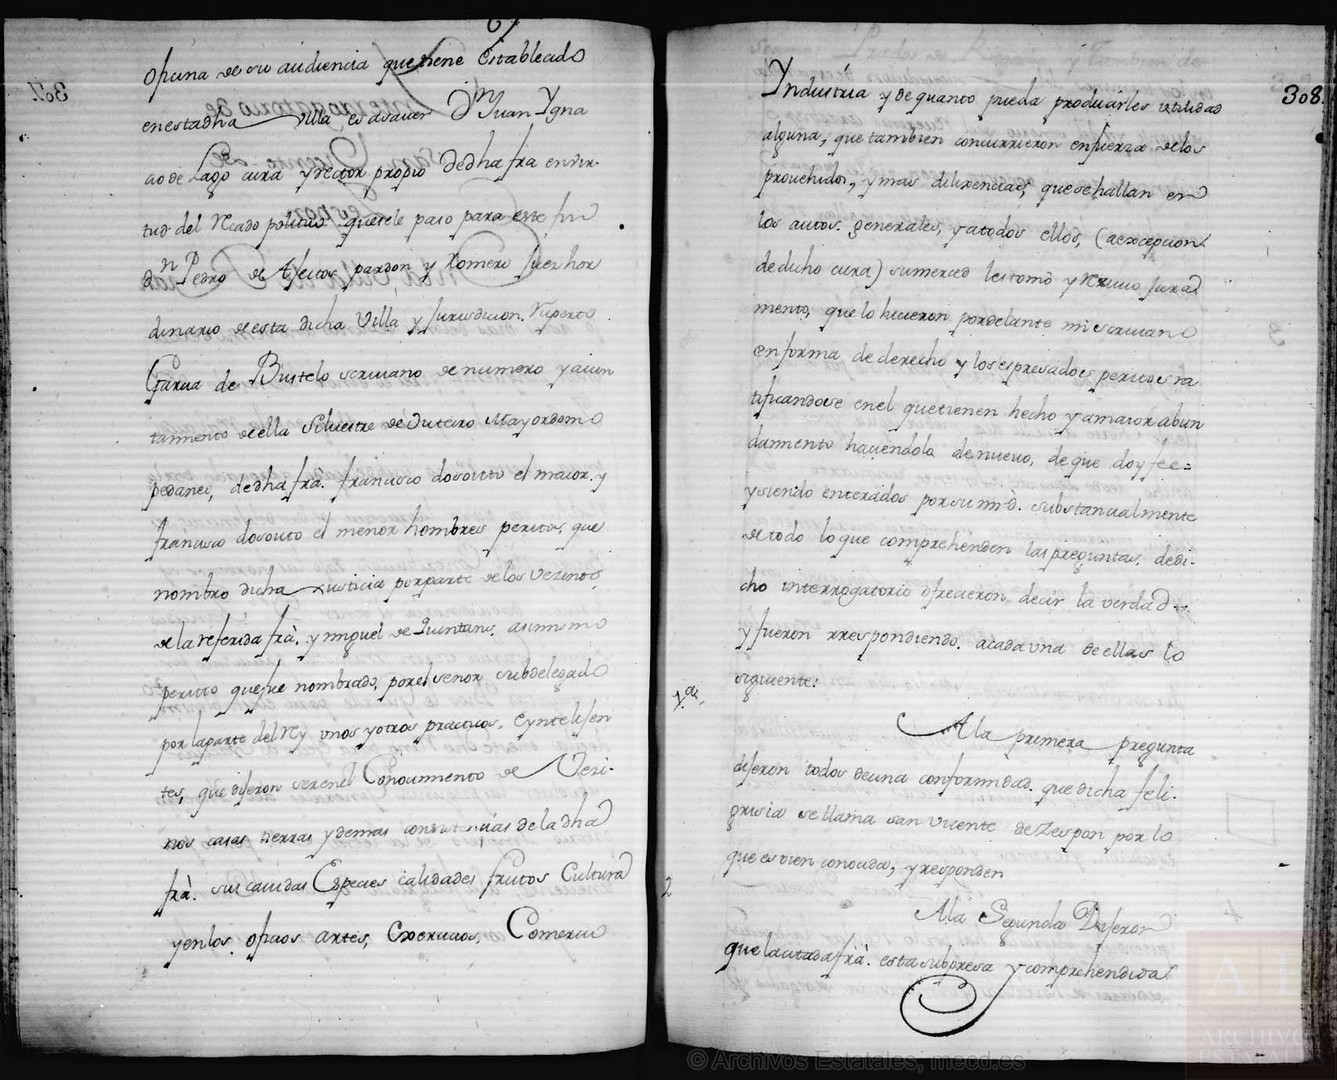 oficina de su audiencia que tiene establecido
en esta dha villa es a saver Dn Juan Ygna
cio de Lago cura y rector propio de dha fra en vir-
tud del recado politico que se le paso para este fin
Dn Pedro de pardon y Romero Juez hor
dinario de esta dicha Villa y Jurisdicion. Ruperto
Garcia de Bustelo scrivano de numero y aiun
tamiento de ella Silvestre de Outeiro Mayordomo
pedaneo, de dha fra. francisco dosouto el maior. y
francisco dosouto el menor hombres peritos, que
nombro dicha xusticia por parte de los vezinos,
de la referida fra. y miguel de Quintans, asimismo
peritto que fue nombrado, por el señor subdelegado
por la parte del Rey unos y otros practicos, e yntelisen
tes, que diseron tener el Conocimiento de Vezi-
nos casas tierras y demas consistencias de la dha
fra. sus cavidas Especies calidades frutos Cultura
y en los oficios artes, Exercicios, Comercio
308
Yndustria y de quanto pueda producirles utilidad
alguna, que tambien concurrieron en fuerza de los
provehidos, y mas dilixencias, que se hallan en
los autos. generales, y a todos ellos, (a excepcion
de dicho cura) su merced les tomo y recivio Jura
mento, que lo hicieron por delante mi escrivano
en forma, de derecho y los expresados peritos ra
tificandose en el que tienen hecho y a maior abun
damiento haciendolo de nuevo, de que doy fee=
y siendo enterados por su md. substancialmente
de todo lo que comprehenden las preguntas, de di-
cho interrogatorio ofrecieron, decir la verdad
y fueron rrespondiendo. a cada una de ellas lo
siguiente:
1.a
A la primera pregunta
diseron todos de una conformidad. que dicha feli-
gresia se llama san Vicente de Zespon por lo
que es vien conocida, y responden
2
A la Segunda Diseron
que la citada fra. esta sub oresa y comprehendida
© Archivos Estatales, mecd.es
ARCHIVOS
ESTATALES